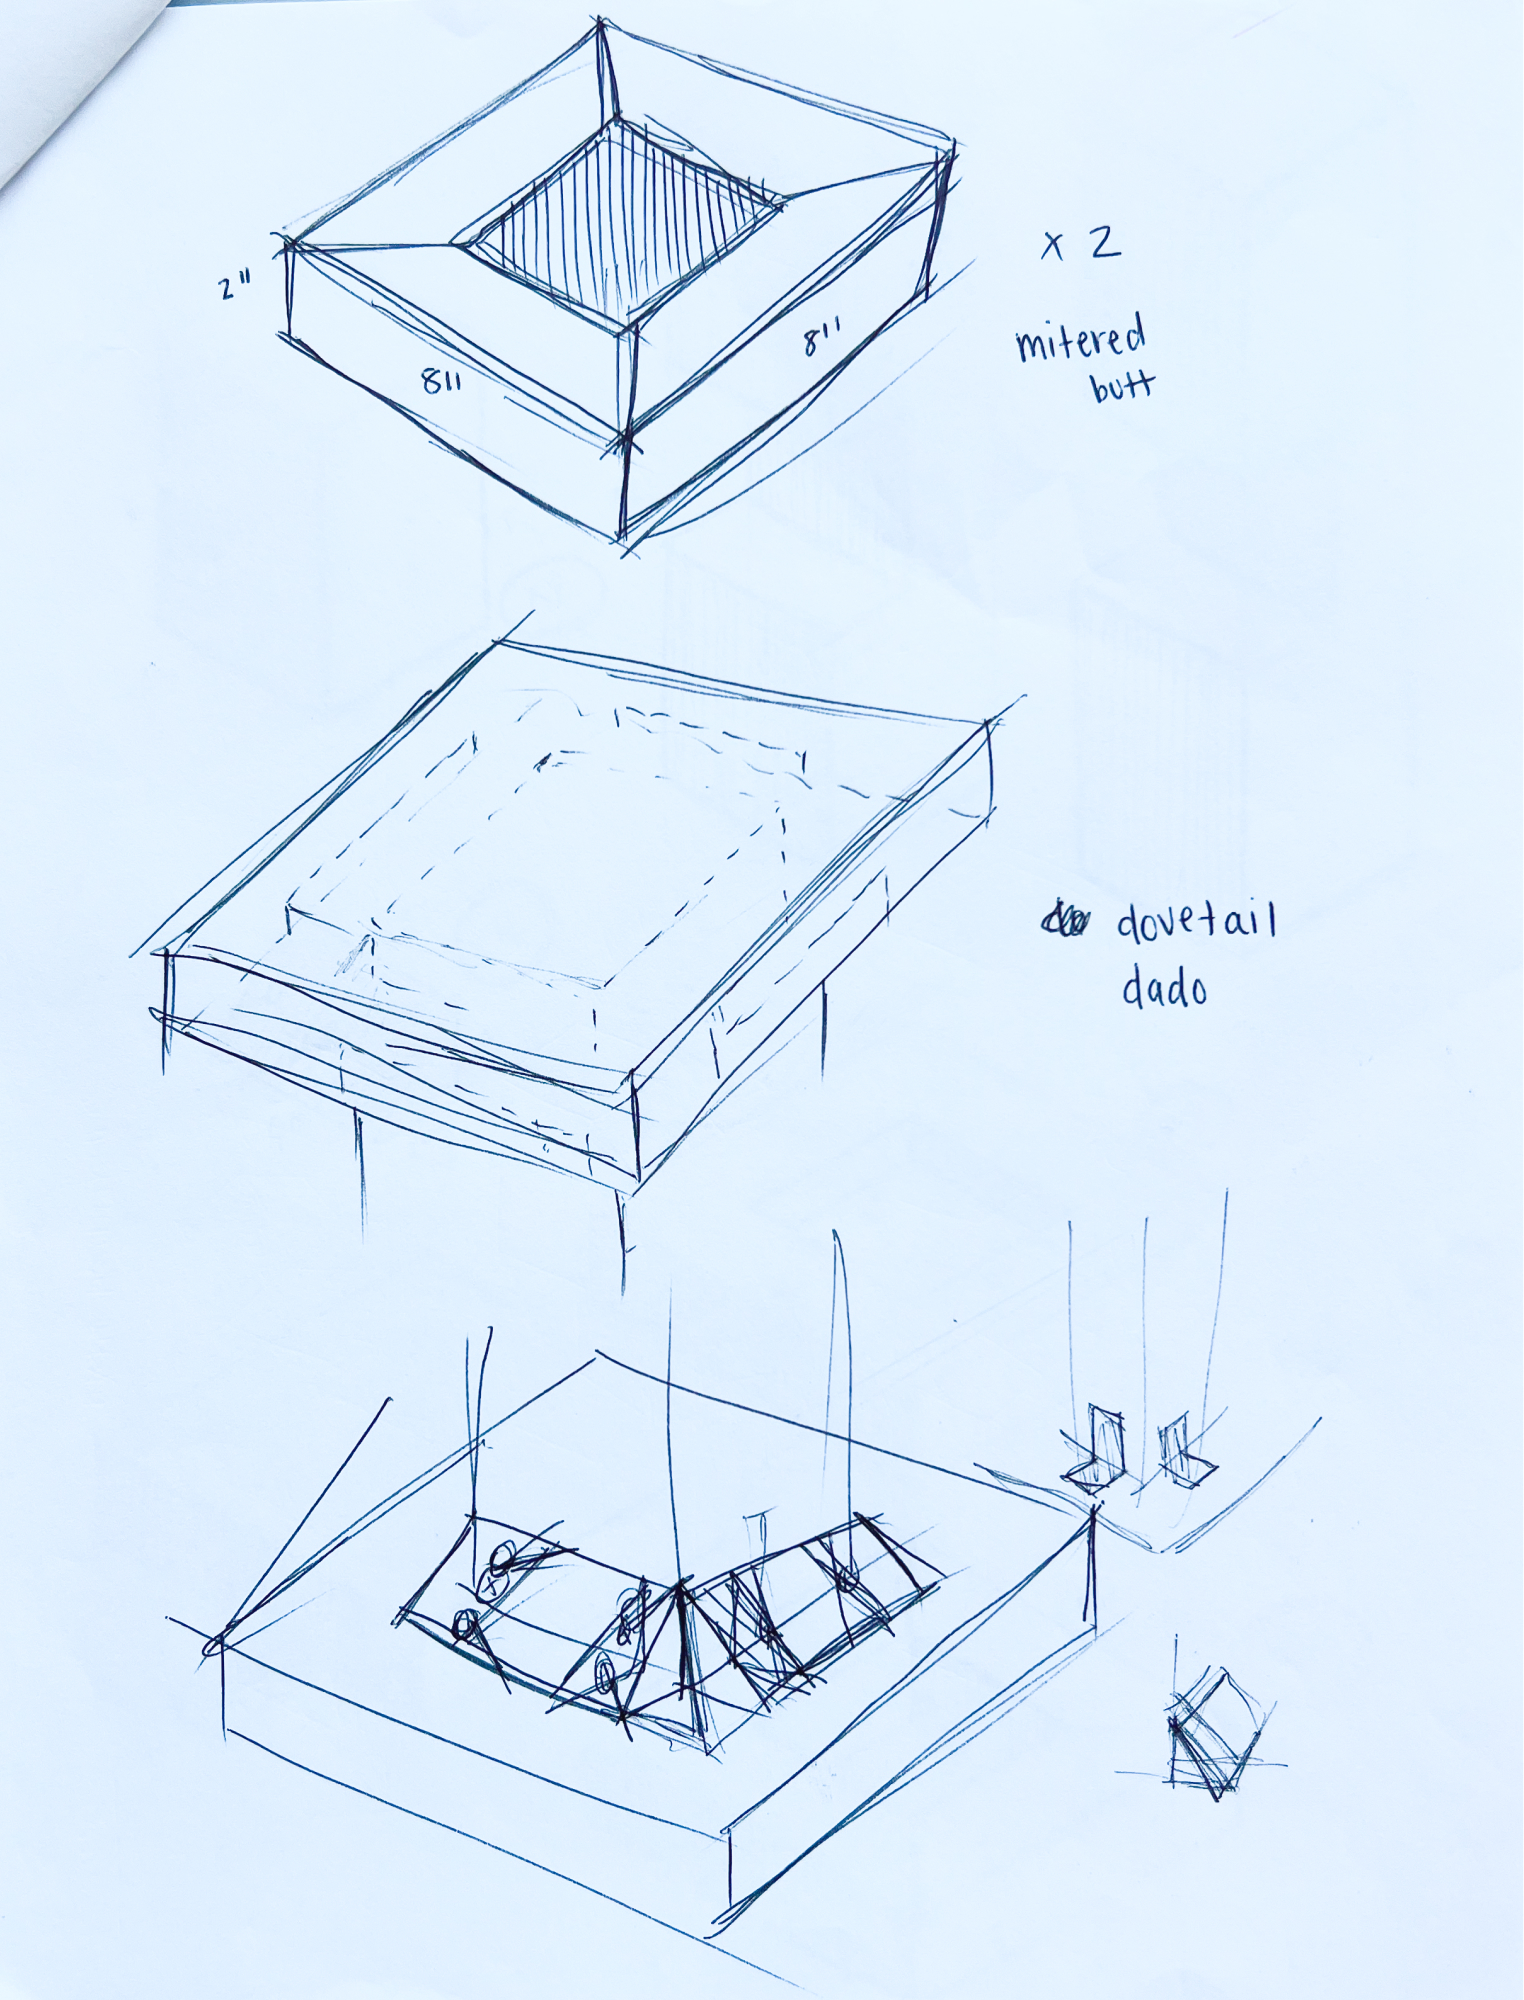 x 2
2"
8"
8"
mitered
butt
dovetail
dado